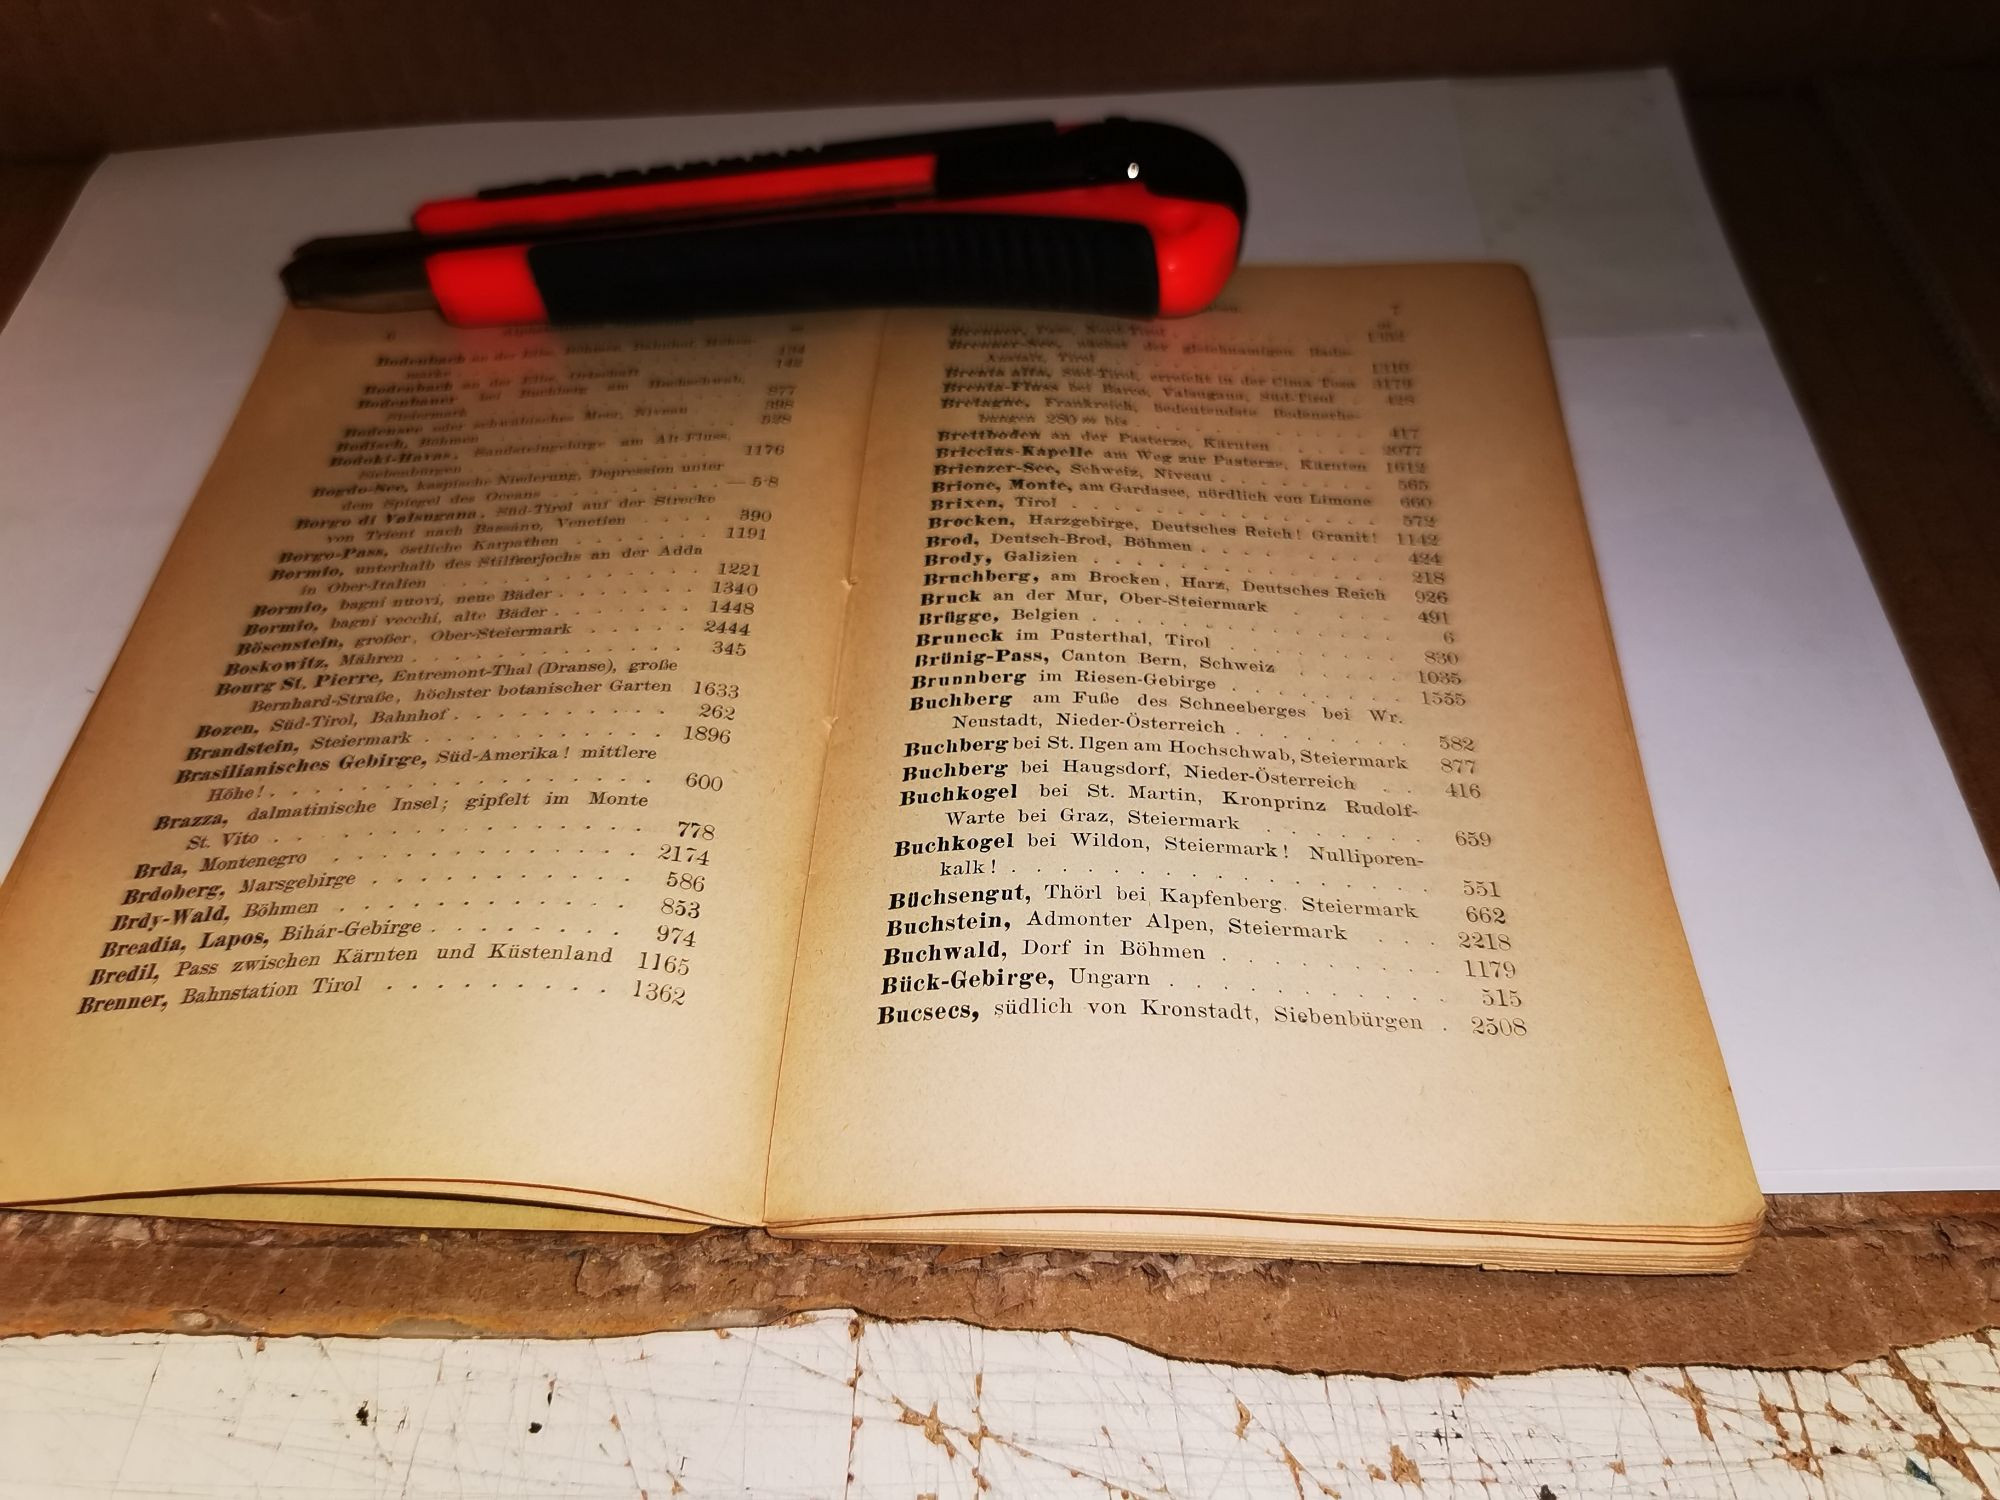 6
Bodenbach an der Elbe, Böhmen, Bahnhof, Höhen-
marke 134
Bodenbach an der Elbe, Ortschaft 142
Bodenbauer bei Buchberg am Hochschwab,
Steiermark 877
Bodensee oder schwäbisches Meer, Niveau 398
Bodisch, Böhmen 528
Bodoki-Havas, Sandsteingebirge am Alt-Fluss,
Siebenbürgen 1176
Bogdo-See, kaspische Niederung, Depression unter
dem Spiegel des Oceans — 5·8
Borgo di Valsugana, Süd-Tirol auf der Strecke
von Trient nach Bassano, Venetien 390
Borgo-Pass, östliche Karpathen 1191
Bormio, unterhalb des Stilfserjochs an der Adda
in Ober-Italien 1221
Bormio, bagni nuovi, neue Bäder 1340
Bormio, bagni vecchi, alte Bäder 1448
Bösenstein, großer, Ober-Steiermark 2444
Boskowitz, Mähren 345
Bourg St. Pierre, Entremont-Thal (Dranse), große
Bernhard-Straße, höchster botanischer Garten 1633
Bozen, Süd-Tirol, Bahnhof 262
Brandstein, Steiermark 1896
Brasilianisches Gebirge, Süd-Amerika! mittlere
Höhe! 600
Brazza, dalmatinische Insel; gipfelt im Monte
St. Vito 778
Brda, Montenegro 2174
Brdoberg, Marsgebirge 586
Brdy-Wald, Böhmen 853
Breadia, Lapos, Bihár-Gebirge 974
Bredil, Pass zwischen Kärnten und Küstenland 1165
Brenner, Bahnstation Tirol 1362
7
Brenner, Pass, Nord-Tirol 1362
Brenner-See, nächst der gleichnamigen Bade-
Anstalt, Tirol 1310
Brenta alta, Süd-Tirol, erreicht in der Cima Tosa 3179
Brenta-Fluss bei Barco, Valsugana, Süd-Tirol 428
Bretagne, Frankreich, bedeutendste Bodenerhe-
bungen 280 m bis 417
Brettboden an der Pasterze, Kärnten 2077
Briccius-Kapelle am Weg zur Pasterze, Kärnten 1612
Brienzer-See, Schweiz, Niveau 565
Brione, Monte, am Gardasee, nördlich von Limone 660
Brixen, Tirol 572
Brocken, Harzgebirge, Deutsches Reich! Granit! 1142
Brod, Deutsch-Brod, Böhmen 424
Brody, Galizien 218
Bruchberg, am Brocken, Harz, Deutsches Reich 926
Bruck an der Mur, Ober-Steiermark 491
Brügge, Belgien 6
Bruneck im Pusterthal, Tirol 830
Brünig-Pass, Canton Bern, Schweiz 1035
Brunnberg im Riesen-Gebirge 1555
Buchberg am Fuße des Schneeberges bei Wr.
Neustadt, Nieder-Österreich 582
Buchberg bei St. Ilgen am Hochschwab, Steiermark 877
Buchberg bei Haugsdorf, Nieder-Österreich 416
Buchkogel bei St. Martin, Kronprinz Rudolf-
Warte bei Graz, Steiermark 659
Buchkogel bei Wildon, Steiermark! Nulliporen-
kalk! 551
Büchsengut, Thörl bei Kapfenberg, Steiermark 662
Buchstein, Admonter Alpen, Steiermark 2218
Buchwald, Dorf in Böhmen 1179
Bück-Gebirge, Ungarn 515
Bucsecs, südlich von Kronstadt, Siebenbürgen 2508